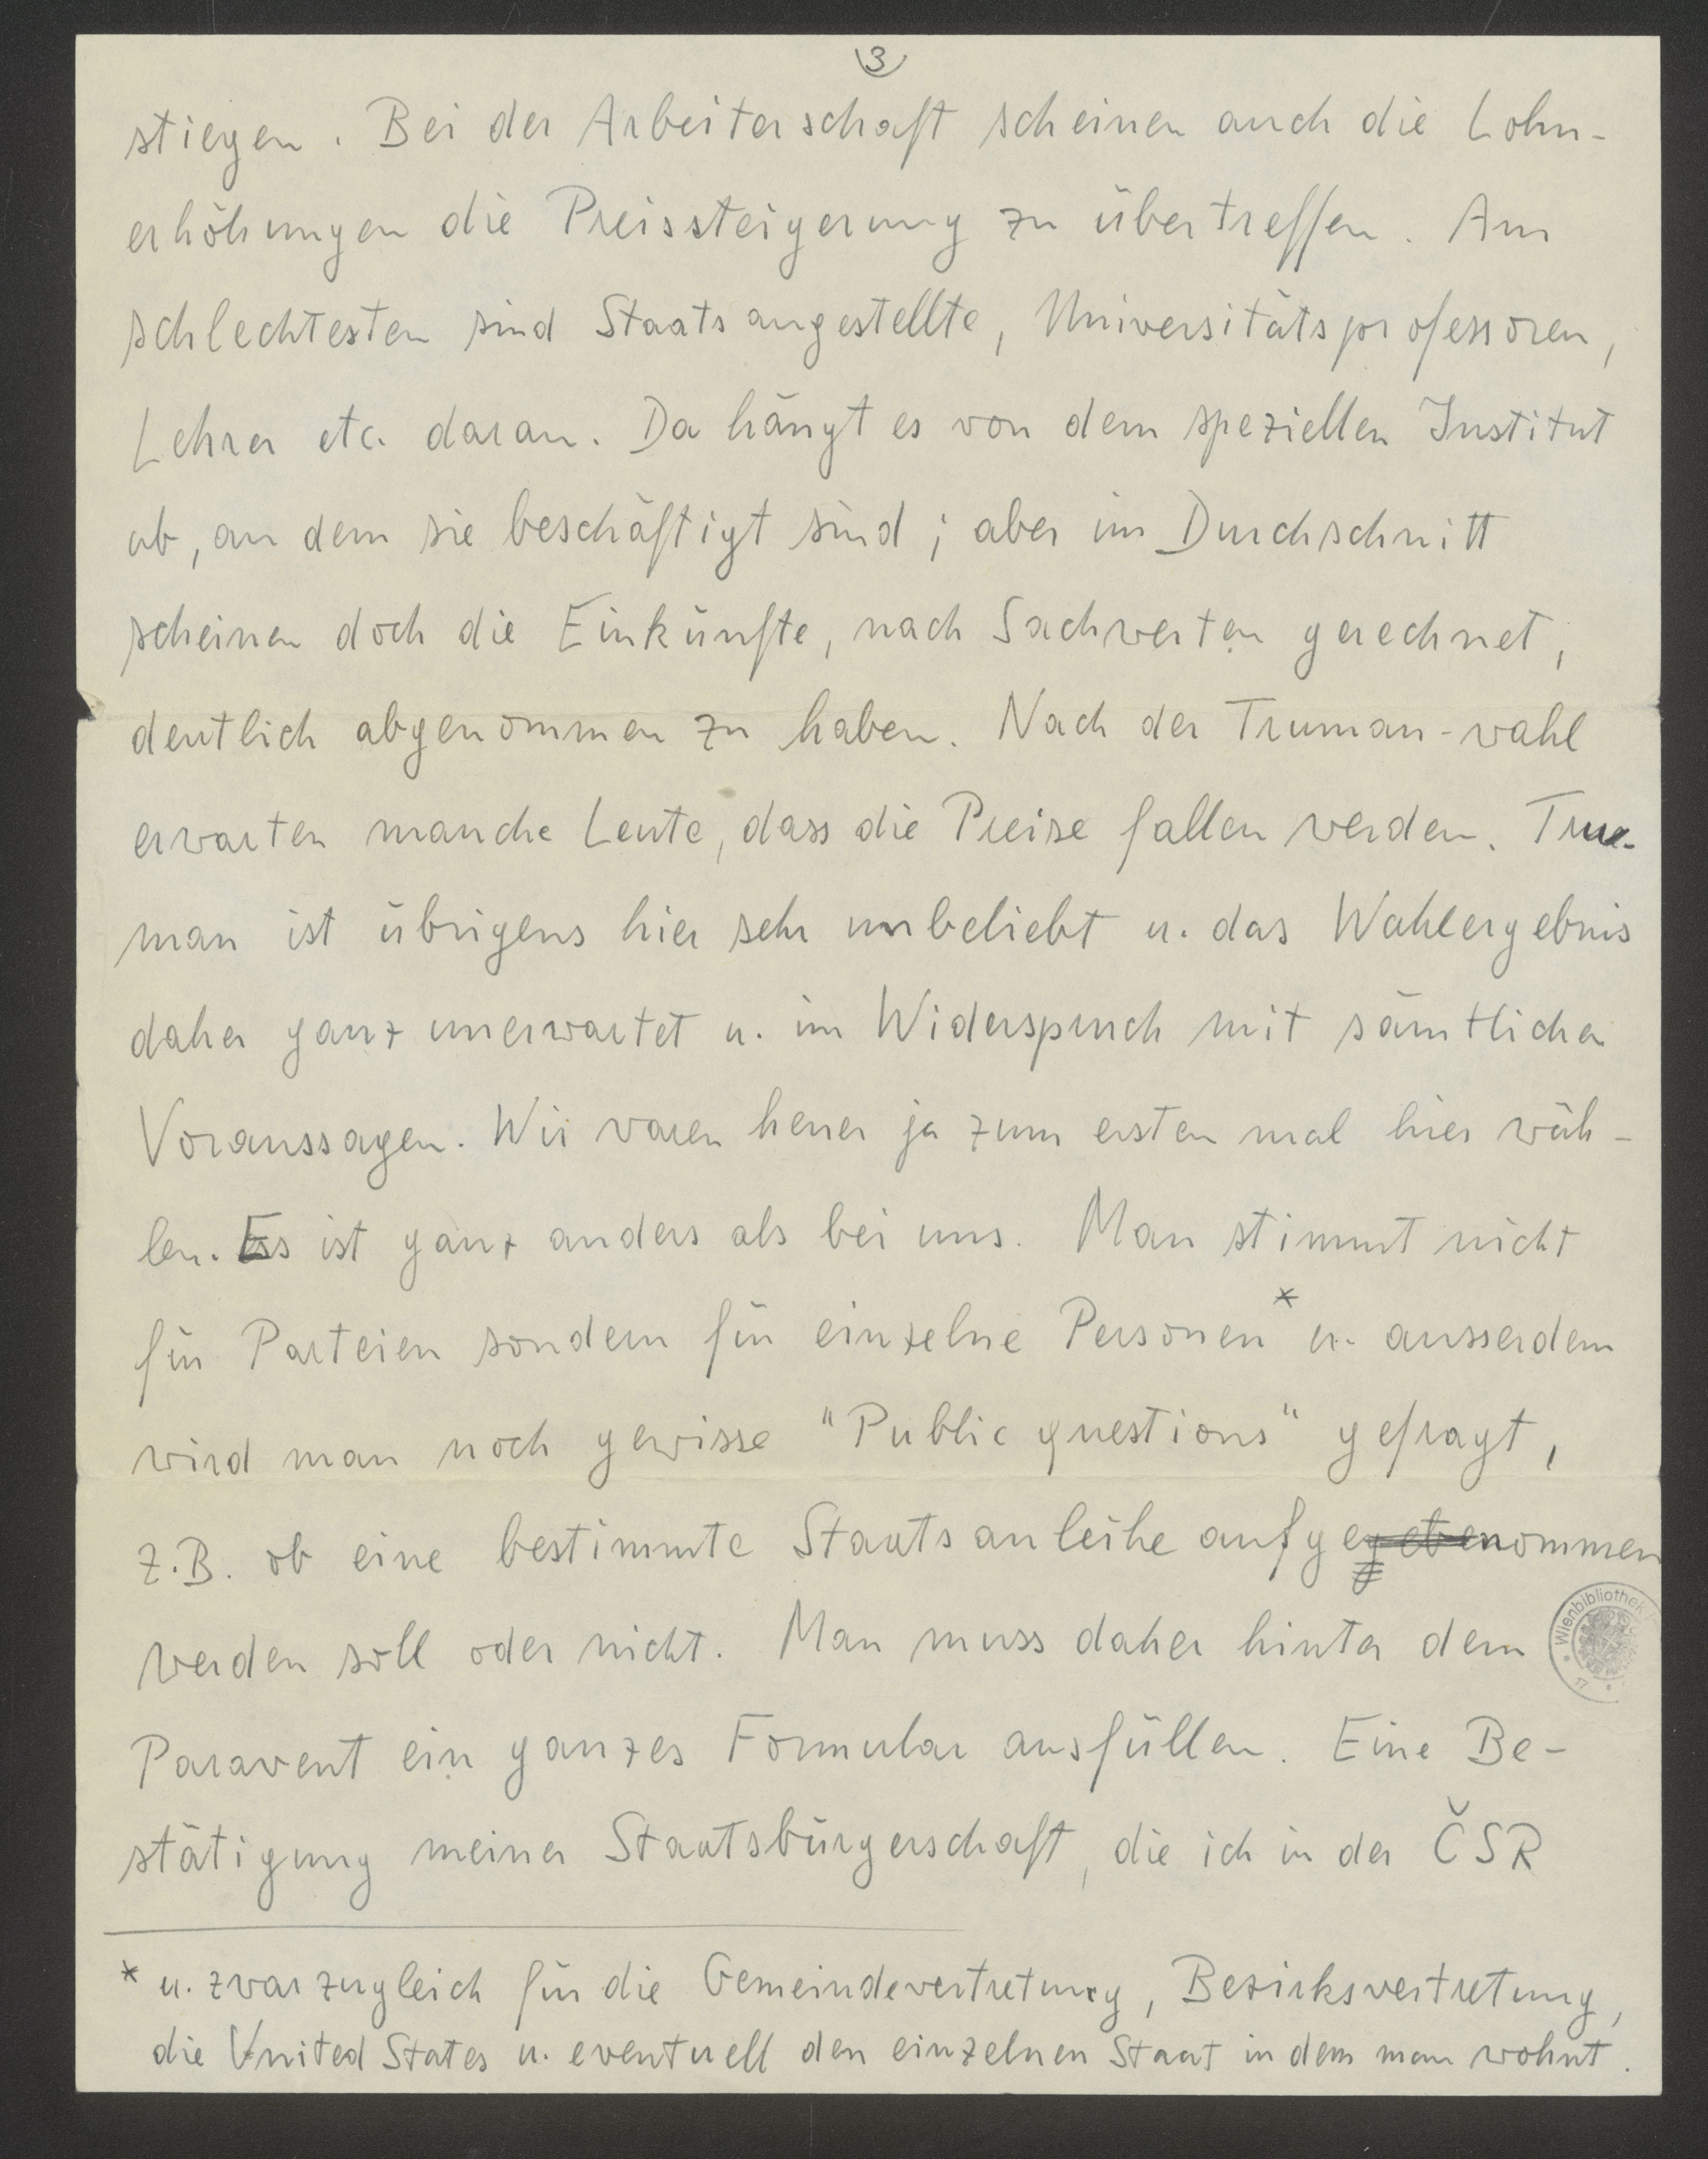 3
stiegen. Bei der Arbeiterschaft scheinen auch die Lohn-
erhöhungen die Preissteigerung zu übertreffen. Am
schlechtesten sind Staatsangestellte, Universitätsprofessoren,
Lehrer etc. daran. Da hängt es von dem speziellen Institut
ab, an dem sie beschäftigt sind; aber im Durchschnitt
scheinen doch die Einkünfte, nach Sachwerten gerechnet,
deutlich abgenommen zu haben. Nach der Truman-wahl
erwarten manche Leute, dass die Preise fallen werden. Tru-
man ist übrigens hier sehr unbeliebt u. das Wahlergebnis
daher ganz unerwartet u. im Widerspruch mit sämtlichen
Voraussagen. Wir waren heuer ja zum ersten mal hier wäh-
len. Es ist ganz anders als bei uns. Man stimmt nicht
für Parteien sondern für einzelne Personen* u. ausserdem
wird man noch gewisse "Public questions" gefragt,
z.B. ob eine bestimmte Staatsanleihe aufgenommen
werden soll oder nicht. Man muss daher hinter dem
Paravent ein ganzes Formular ausfüllen. Eine Be-
stätigung meiner Staatsbürgerschaft, die ich in der ČSR
* u. zwar zugleich für die Gemeindevertretung, Bezirksvertretung,
die United States u. eventuell den einzelnen Staat in dem man wohnt.
Wienbibliothek